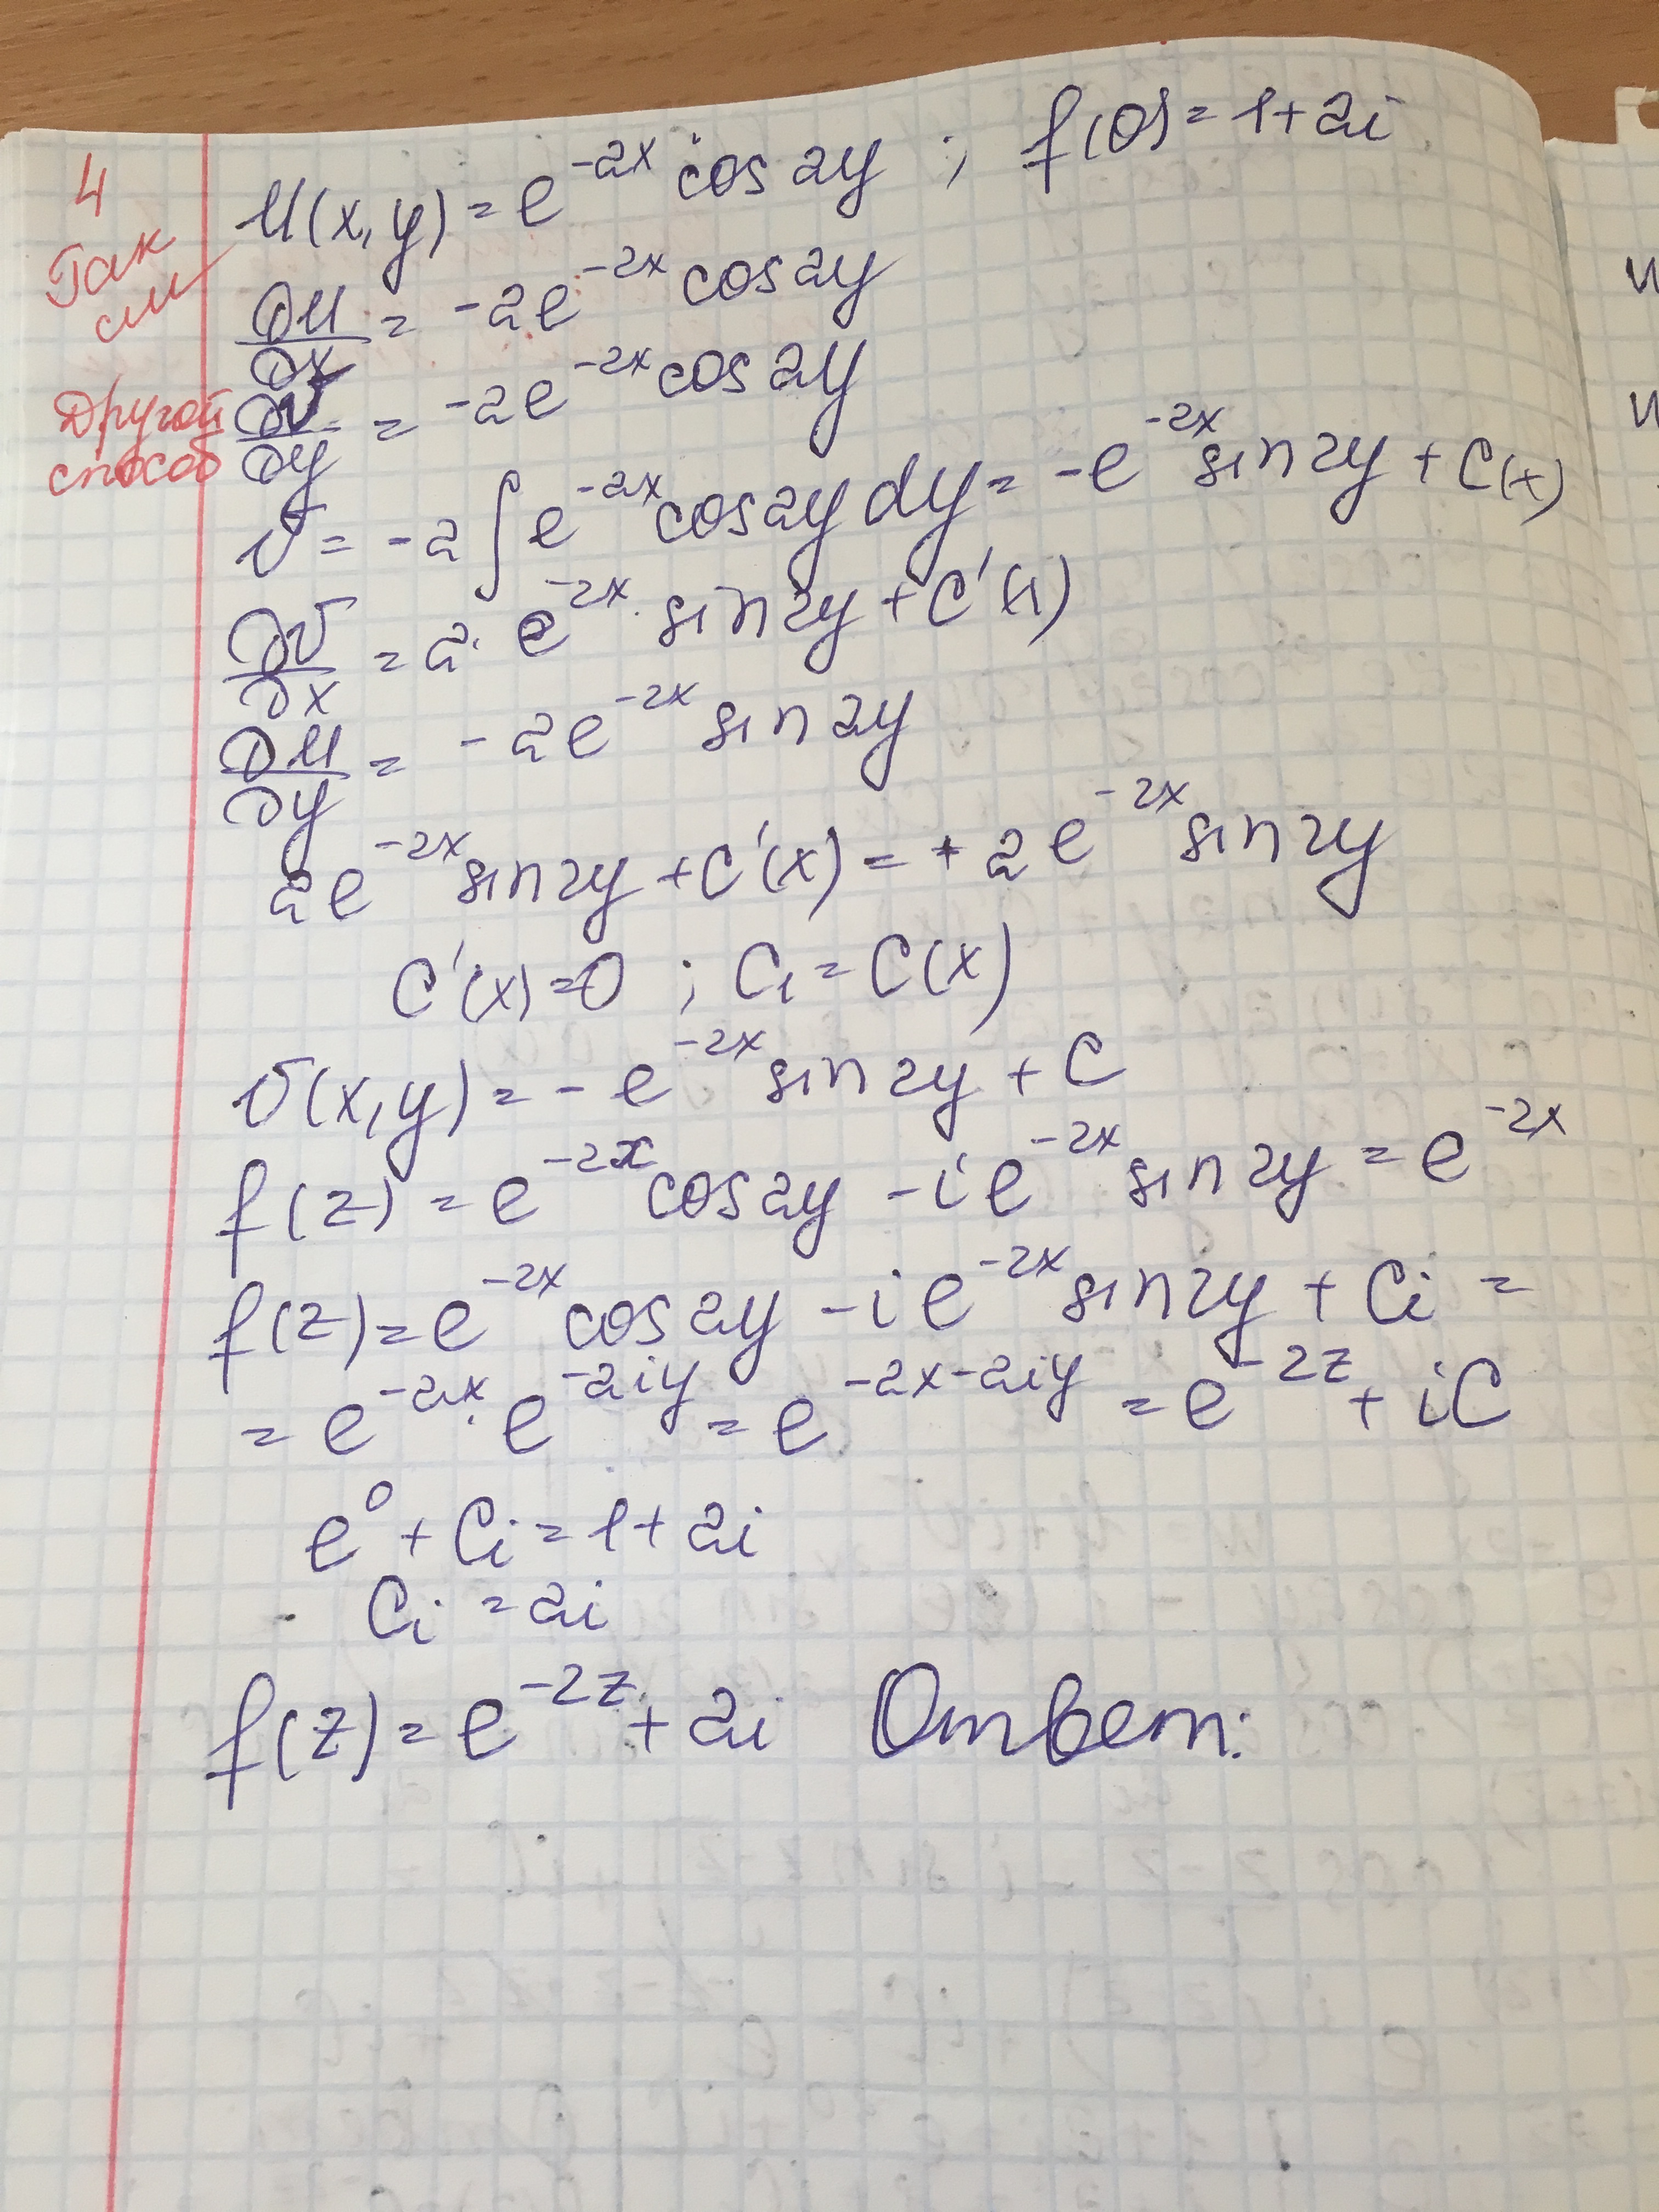 4
Так
см
Другой
способ
u(x,y) = e^{-2x} cos 2y ; f(0) = 1 + 2i
∂u/∂x = -2e^{-2x} cos 2y
∂v/∂y = -2e^{-2x} cos 2y
v = -2 ∫ e^{-2x} cos 2y dy = -e^{-2x} sin 2y + C(x)
∂v/∂x = 2 · e^{-2x} · sin 2y + C'(x)
∂u/∂y = -2e^{-2x} sin 2y
2e^{-2x} sin 2y + C'(x) = + 2e^{-2x} sin 2y
C'(x) = 0 ; C₁ = C(x)
v(x,y) = -e^{-2x} sin 2y + C
f(z) = e^{-2x} cos 2y - i e^{-2x} sin 2y = e^{-2x}
f(z) = e^{-2x} cos 2y - i e^{-2x} sin 2y + Ci =
= e^{-2x} · e^{-2iy} = e^{-2x-2iy} = e^{-2z} + iC
e^0 + Ci = 1 + 2i
Ci = 2i
f(z) = e^{-2z} + 2i Ответ: